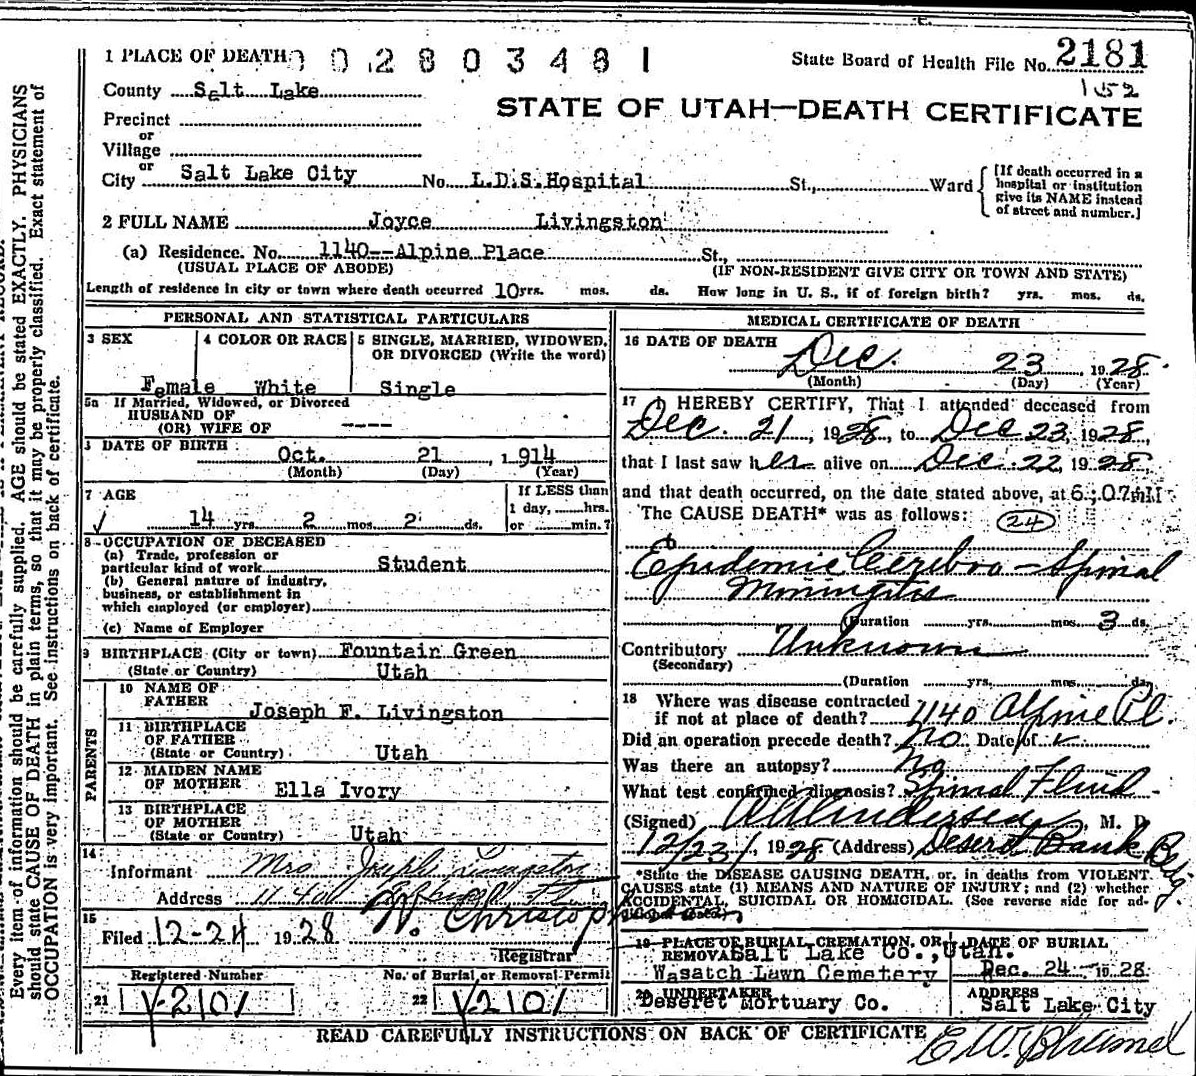 1 PLACE OF DEATH
0 0 2 8 0 3 4 8 1
State Board of Health File No. 2181
152
County Salt Lake
STATE OF UTAH—DEATH CERTIFICATE
Precinct
or
Village
or
City Salt Lake City No. L.D.S.Hospital St., Ward
[If death occurred in a hospital or institution give its NAME instead of street and number.]
2 FULL NAME Joyce Livingston
(a) Residence. No. 1140--Alpine Place St.,
(USUAL PLACE OF ABODE) (IF NON-RESIDENT GIVE CITY OR TOWN AND STATE)
Length of residence in city or town where death occurred 10 yrs. mos. ds. How long in U. S., if of foreign birth? yrs. mos. ds.
PERSONAL AND STATISTICAL PARTICULARS
3 SEX 4 COLOR OR RACE 5 SINGLE, MARRIED, WIDOWED, OR DIVORCED (Write the word)
Female White Single
5a If Married, Widowed, or Divorced
HUSBAND OF
(OR) WIFE OF ----
DATE OF BIRTH
Oct. 21 , 1914
(Month) (Day) (Year)
7 AGE
If LESS than
1 day, hrs.
14 yrs. 2 mos. 2 ds. or min.?
8 OCCUPATION OF DECEASED
(a) Trade, profession or
particular kind of work Student
(b) General nature of industry,
business, or establishment in
which employed (or employer)
(c) Name of Employer
9 BIRTHPLACE (City or town) Fountain Green
(State or Country) Utah
PARENTS
10 NAME OF
FATHER Joseph F. Livingston
11 BIRTHPLACE
OF FATHER
(State or Country) Utah
12 MAIDEN NAME
OF MOTHER Ella Ivory
13 BIRTHPLACE
OF MOTHER
(State or Country) Utah
14
Informant Mrs Joseph Livingston
Address 1140
15
Filed 12-24 1928
Registrar
Registered Number No. of Burial or Removal Permit
21 Y-2101 22 Y2101
MEDICAL CERTIFICATE OF DEATH
16 DATE OF DEATH
Dec. 23 , 1928
(Month) (Day) (Year)
17 I HEREBY CERTIFY, That I attended deceased from
Dec. 21, 1928, to Dec 23, 1928,
that I last saw her alive on Dec. 22, 1928,
and that death occurred, on the date stated above, at 6:07
The CAUSE DEATH* was as follows: 24
Epidemic Cerebro-Spinal
Miningitis
(Duration yrs. mos. 3 ds.
Contributory Unknown
(Secondary)
(Duration yrs. mos. ds.
18 Where was disease contracted
if not at place of death? 1140 Alpine Pl.
Did an operation precede death? No Date of
Was there an autopsy? No
What test confirmed diagnosis? Spinal Fluid
(Signed) Andersen, M. D.
12/23/, 1928 (Address) Desert Bank Bdg.
*State the DISEASE CAUSING DEATH, or, in deaths from VIOLENT
CAUSES state (1) MEANS AND NATURE OF INJURY; and (2) whether
ACCIDENTAL, SUICIDAL OR HOMICIDAL. (See reverse side for ad-
19 PLACE OF BURIAL, CREMATION, OR DATE OF BURIAL
REMOVAL Salt Lake Co., Utah.
Wasatch Lawn Cemetery Dec. 24 1928
20 UNDERTAKER ADDRESS
Deseret Mortuary Co. Salt Lake City
READ CAREFULLY INSTRUCTIONS ON BACK OF CERTIFICATE
Every item of information should be carefully supplied. AGE should be stated EXACTLY. PHYSICIANS
should state CAUSE OF DEATH in plain terms, so that it may be properly classified. Exact statement of
OCCUPATION is very important. See instructions on back of certificate.